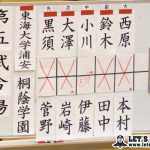 第五試合場
東海大学浦安
黒須
大澤
小川
鈴木
西原
桐蔭学園
菅野
岩崎
伊藤
田中
本村
LET'S